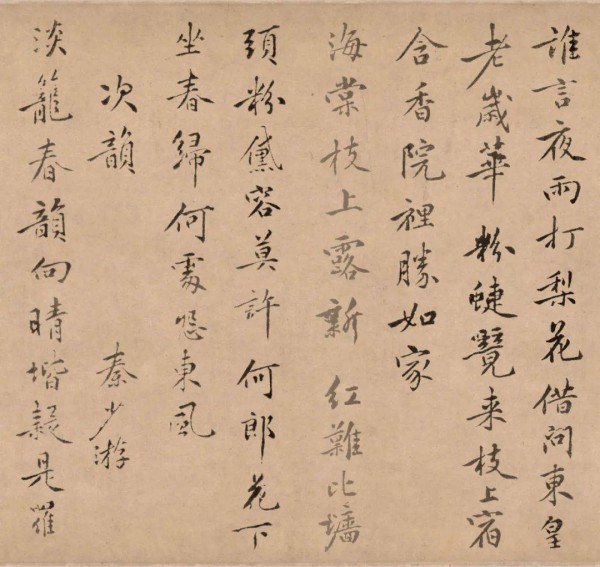 誰言夜雨打梨花借問東皇
老歲華粉蜨覽来枝上宿
含香院裡勝如家
海棠枝上露新紅難比墻
頭粉黛容莫許何郎花下
坐春歸何處怨東風
次韻 秦少游
淡籠春韻向晴堦疑是羅